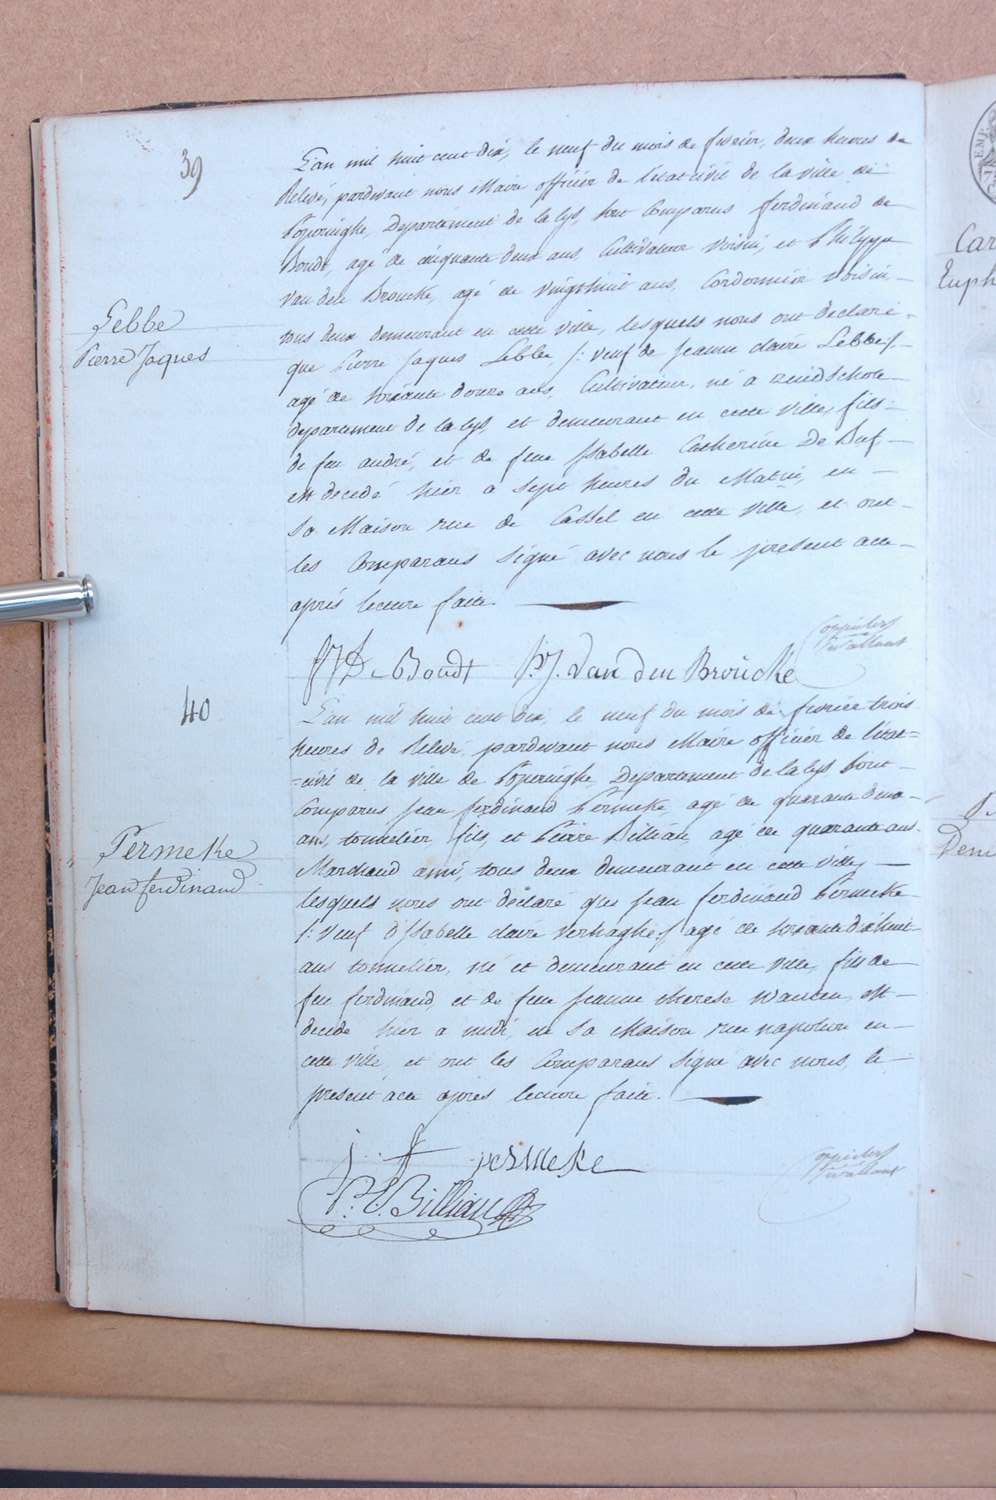 39
L'an mil huit cent dix, le neuf du mois de fevrier, deux heures de
Relevé, pardevant nous Maire officier de l'état civil de la ville de
Poperinghe, Departement de la Lys, sont Comparus ferdinand de
Boudt, agé de cinquante deux ans, Cultivateur Voisin, et Philippe
van den Broucke, agé de vingthuit ans, Cordonnier voisin,
tous deux demeurant en cette ville, lesquels nous ont declaré
que Pierre Jaques Lebbe /: veuf de Jeanne claire Lebbe /.
agé de soixante douze ans, Cultivateur, né a zuidschote
departement de la Lys, et demeurant en cette Ville, fils
de feu andré, et de feue Isabelle Catherine De Buf,
est decedé hier a sept heures du Matin, en
sa Maison rue de Cassel en cette Ville, et ont
les Comparans signé avec nous le present acte
après lecture faite.
Lebbe
Pierre Jaques
F J De Boudt P. J. Van den Broucke
40
L'an mil huit cent dix, le neuf du mois de fevrier trois
heures de Relevé, pardevant nous Maire officier de l'état
civil de la ville de Poperinghe, Departement de la Lys sont
Comparus Jean ferdinand Permeke, agé de quarante deux
ans, tonnelier, fils, et Pierre Billiau, agé de quarante ans
Marchand ami, tous deux demeurant en cette Ville,
lesquels nous ont declaré que Jean ferdinand Permeke
/: Veuf d'Isabelle claire Verhaghe :/ agé de soixante dixhuit
ans tonnelier, né et demeurant en cette Ville, fils de
feu ferdinand, et de feue Jeanne therese Wauten, est
decedé hier a midi, en sa Maison rue napoleon en
cette Ville, et ont les Comparans signé avec nous, le
present acte après lecture faite.
Permeke
Jean ferdinand
j: ff permeke
P. J. Billiau
Car
Euph